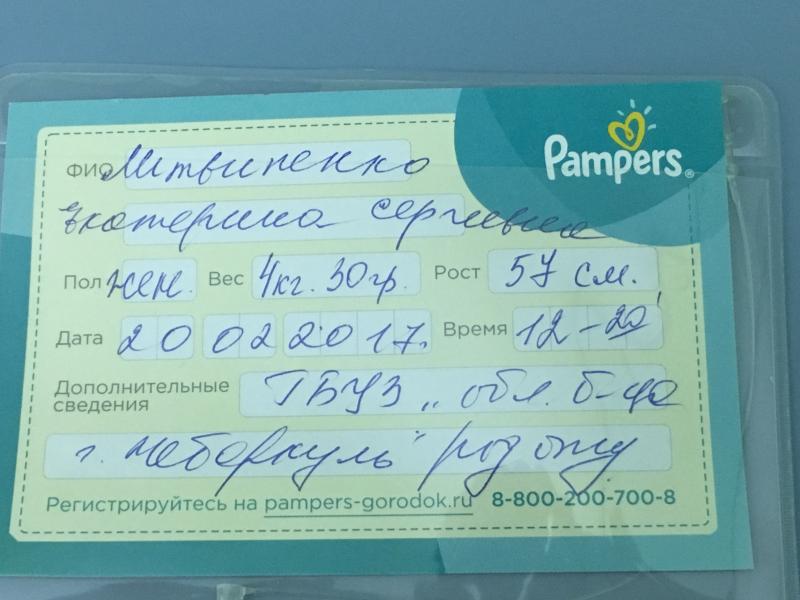 Pampers®
ФИО Литвиненко
Екатерина Сергеевна
Пол жен. Вес 4кг. 30гр. Рост 57 см.
Дата 20 02 2017. Время 12-20
Дополнительные сведения ГБУЗ „обл. б-ца
г. Чебаркуль"
Регистрируйтесь на pampers-gorodok.ru 8-800-200-700-8